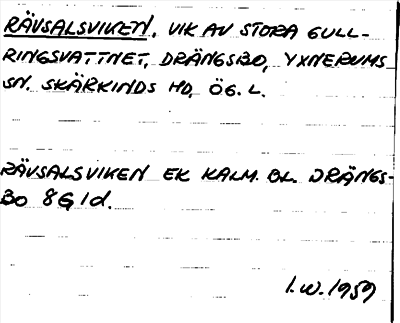 RÄVSALSVIKEN, VIK AV STORA GULL-
RINGSVATTNET, DRÄNGSBO, YXNERUMS
SN. SKÄRKINDS HD, ÖG. L.
RÄVSALSVIKEN EK KALM. BL. DRÄNGS-
BO 8G1d.
I.W.1959